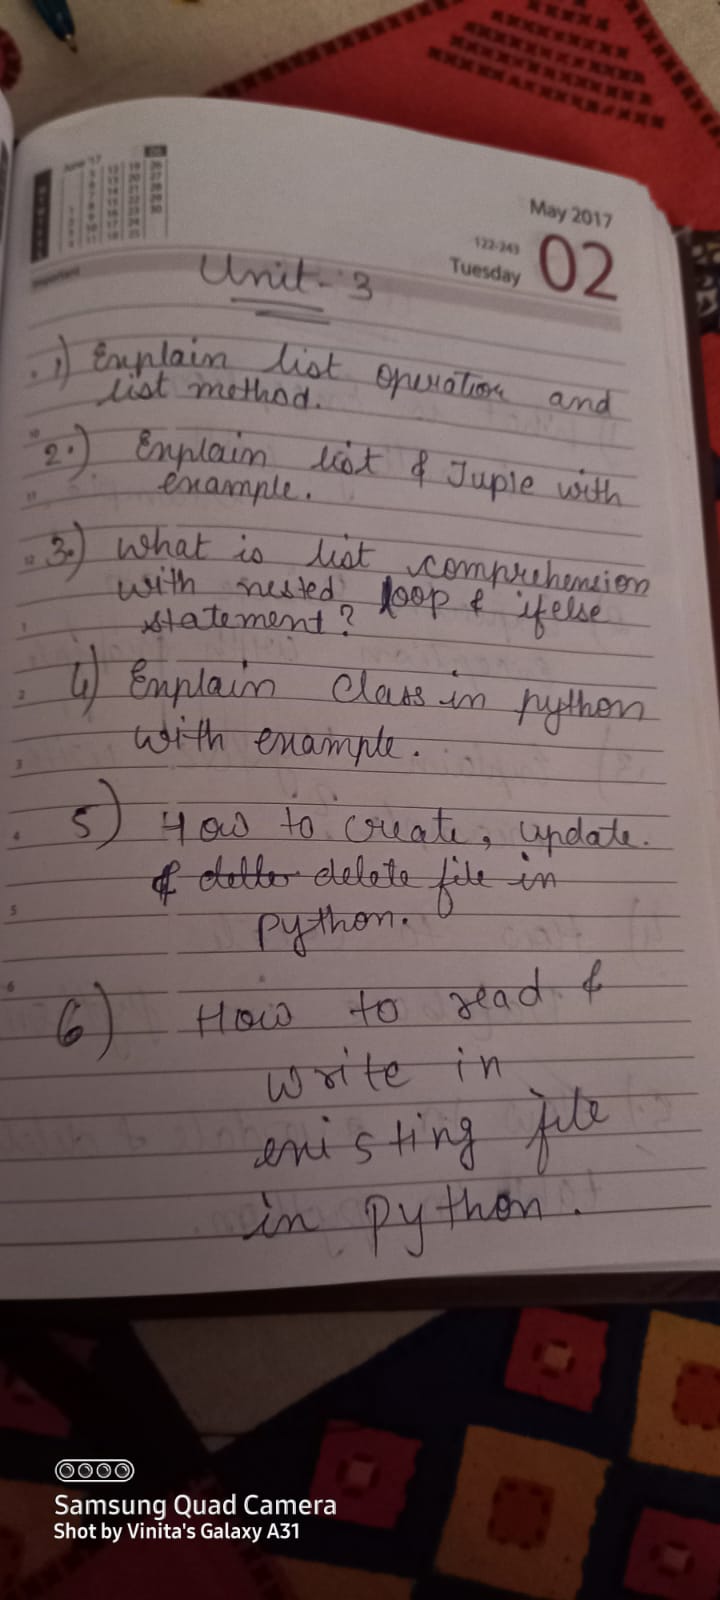 June '17
May 2017
122-243
Tuesday
02
Important
Unit - 3
1) Explain list operation and
list method.
2.) Explain list & Tuple with
example.
3.) What is list comprehension
with nested loop & ifelse
statement?
4) Explain class in python
with example.
5) How to create, update.
& delete file in
python.
6) How to read &
write in
existing file
in python.
Samsung Quad Camera
Shot by Vinita's Galaxy A31